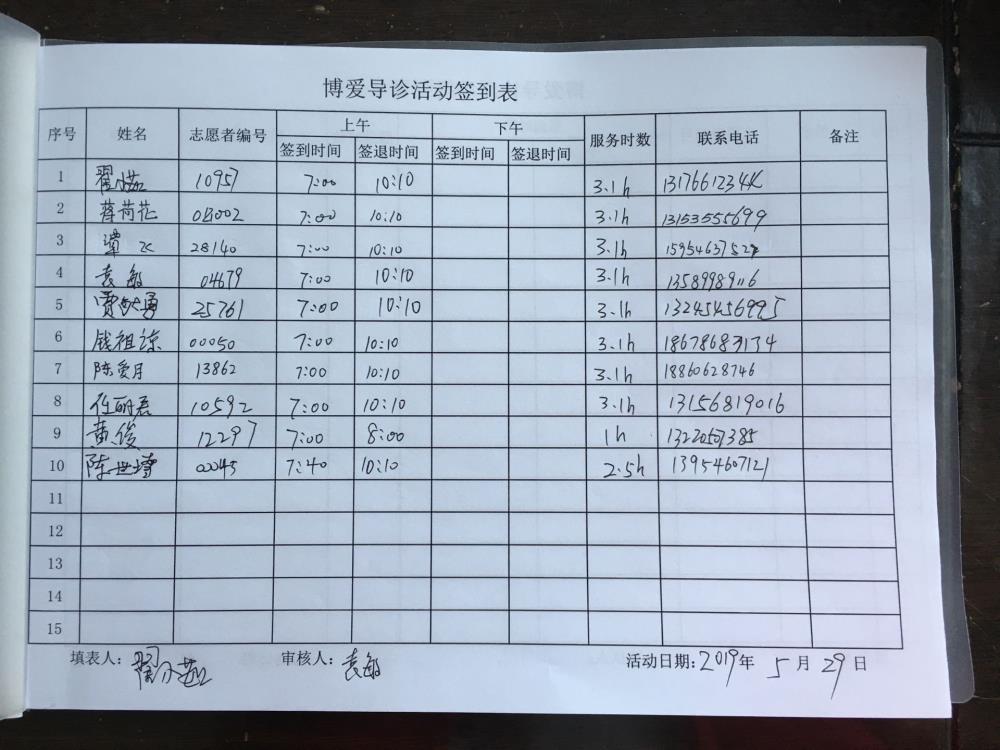 博爱导诊活动签到表
序号 姓名 志愿者编号 上午 下午 服务时数 联系电话 备注
签到时间 签退时间 签到时间 签退时间
1 翟小茹 10957 7:00 10:10 3.1h
2 蒋荷花 03002 7:00 10:10 3.1h 13153555699
3 谭飞 28140 7:00 10:10 3.1h
4 袁敏 04679 7:00 10:10 3.1h 13589989116
5 25761 7:00 10:10 3.1h 13245456995
6 钱祖琼 00050 7:00 10:10 3.1h 18678683134
7 陈爱月 13862 7:00 10:10 3.1h 18860628746
8 任丽君 10592 7:00 10:10 3.1h 13156819016
9 黄俊 12297 7:00 8:00 1h 13220507385
10 陈世 00045 7:40 10:10 2.5h 13954607121
11
12
13
14
15
填表人：翟小茹 审核人：袁敏 活动日期：2019年 5月 29日